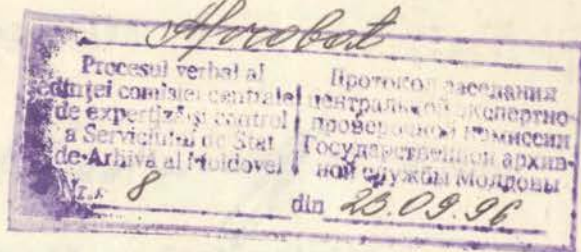 Aprobat
Procesul verbal al
ședinței comisiei centrale
de expertiză și control
a Serviciului de Stat
de Arhivă al Moldovei
Протокол заседания
центральной экспертно-
проверочной комиссии
Государственной архив-
ной службы Молдовы
Nr. 8 din 23.09.96